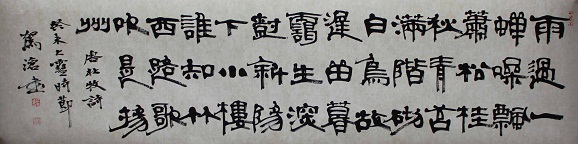 雨過一
蟬噪飄
蕭松桂
秋青苔
滿階砌
白鳥故
遲留暮
靄生深
樹斜陽
下小樓
誰知竹
西路歌
吹是揚
州
唐杜牧詩
癸未